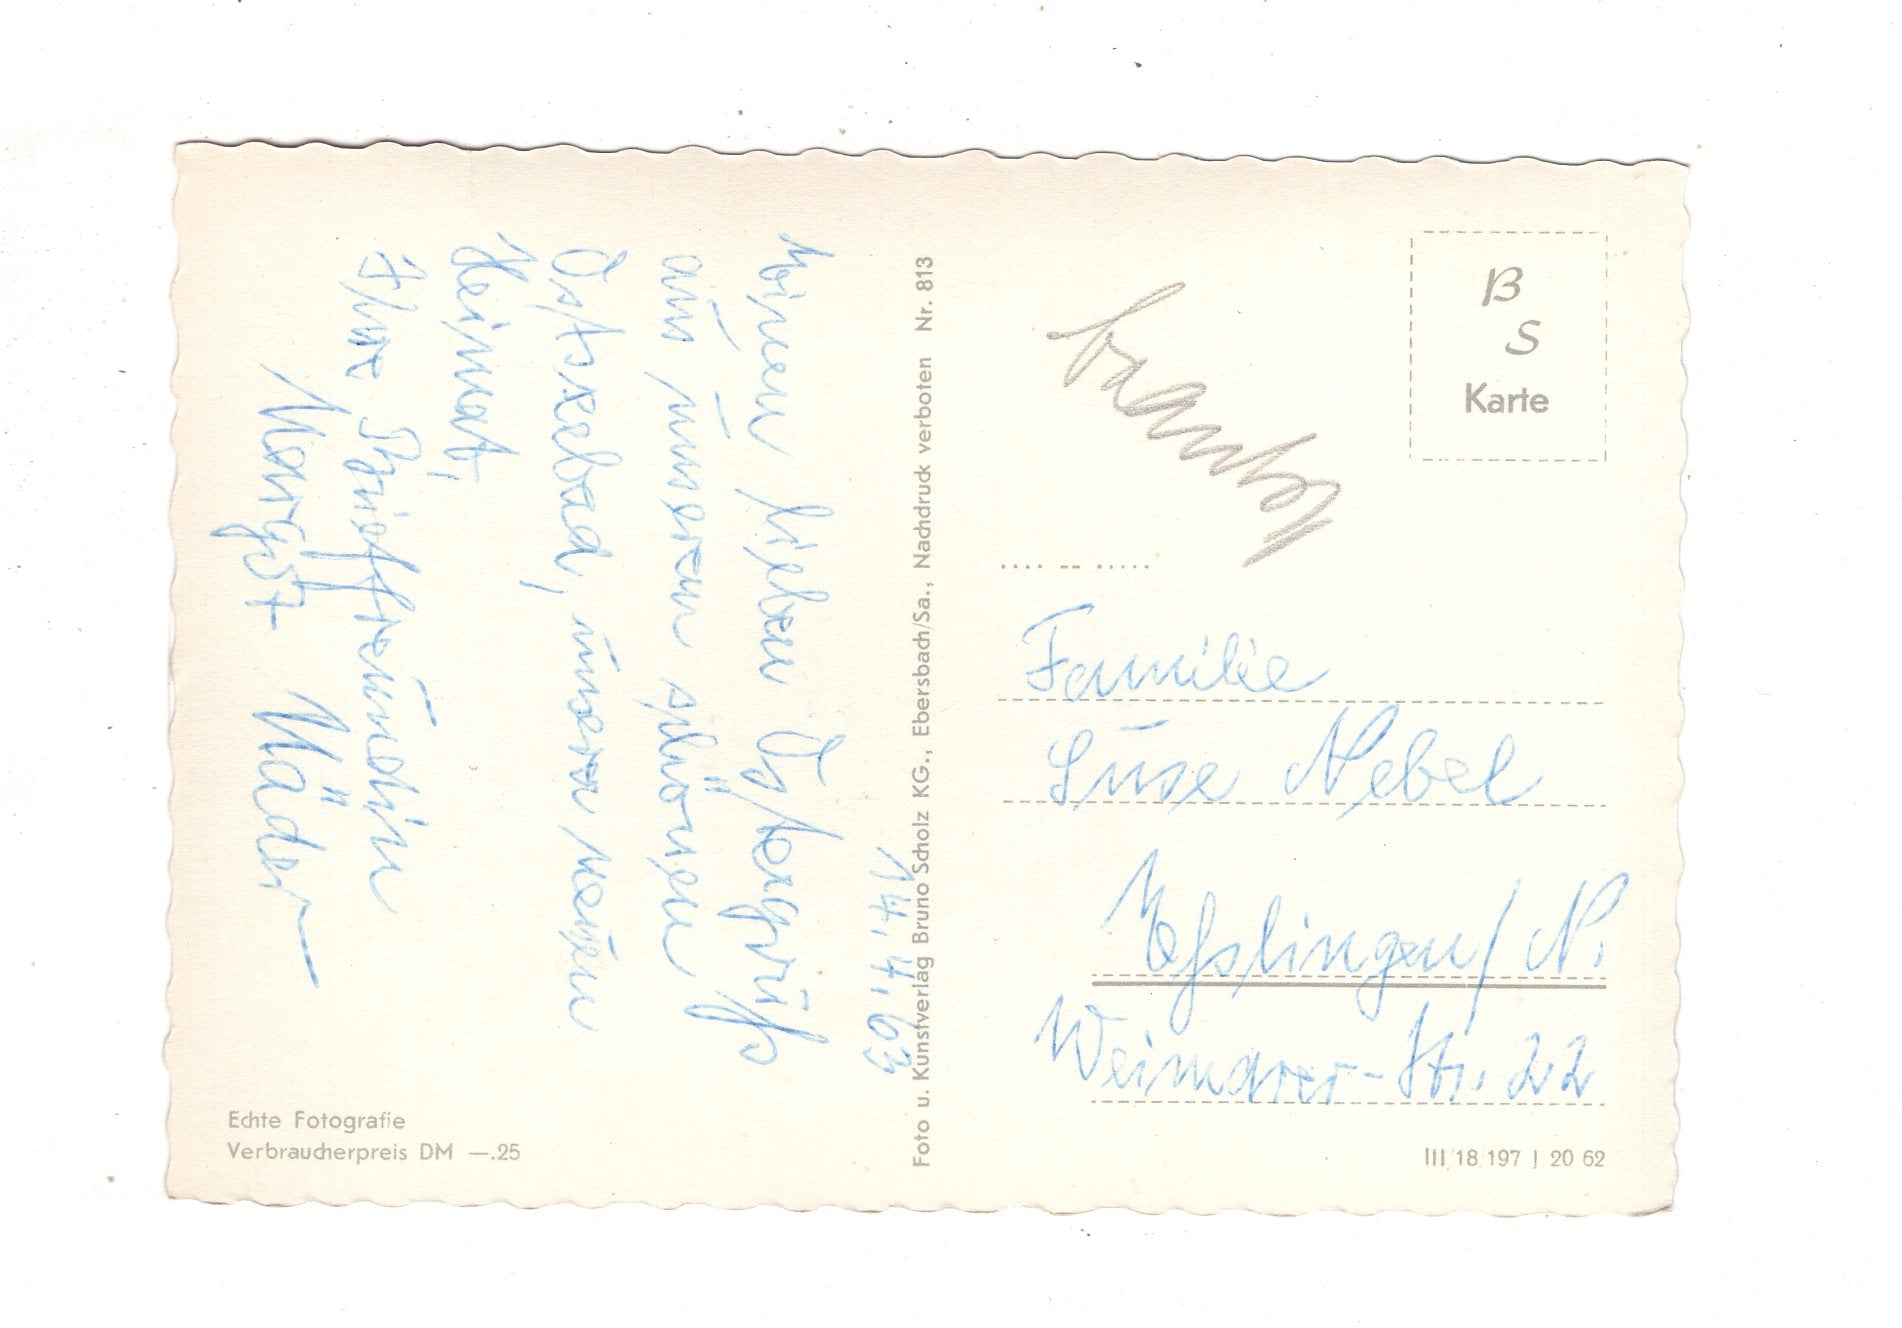 14.4.63
Einen lieben Ostergruß
aus unserem schönen
Ostseebad, unserer neuen
Heimat,
Ihre Brieffreundin
Margot Mäder
Echte Fotografie
Verbraucherpreis DM —.25
Foto u. Kunstverlag Bruno Scholz KG., Ebersbach/Sa., Nachdruck verboten Nr. 813
B
S
Karte
Familie
Suse Nebel
Eßlingen/N.
Weimarer-Str. 22
III/18/197 J 20 62